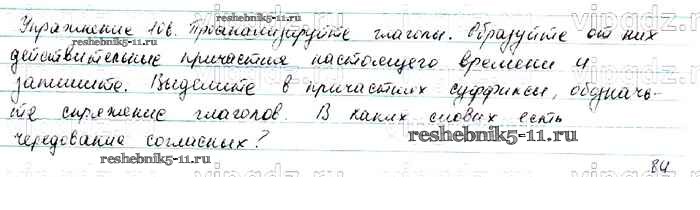 Упражнение 106. Проанализируйте глаголы. Образуйте от них
действительные причастия настоящего времени и
запишите. Выделите в причастиях суффиксы, обозначь-
те спряжение глаголов. В каких словах есть
чередование согласных?
reshebnik5-11.ru
reshebnik5-11.ru
reshebnik5-11.ru
84